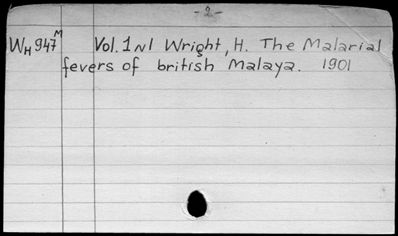 -2-
WH947M Vol. 1 N1 Wright, H. The Malarial
fevers of british Malaya. 1901